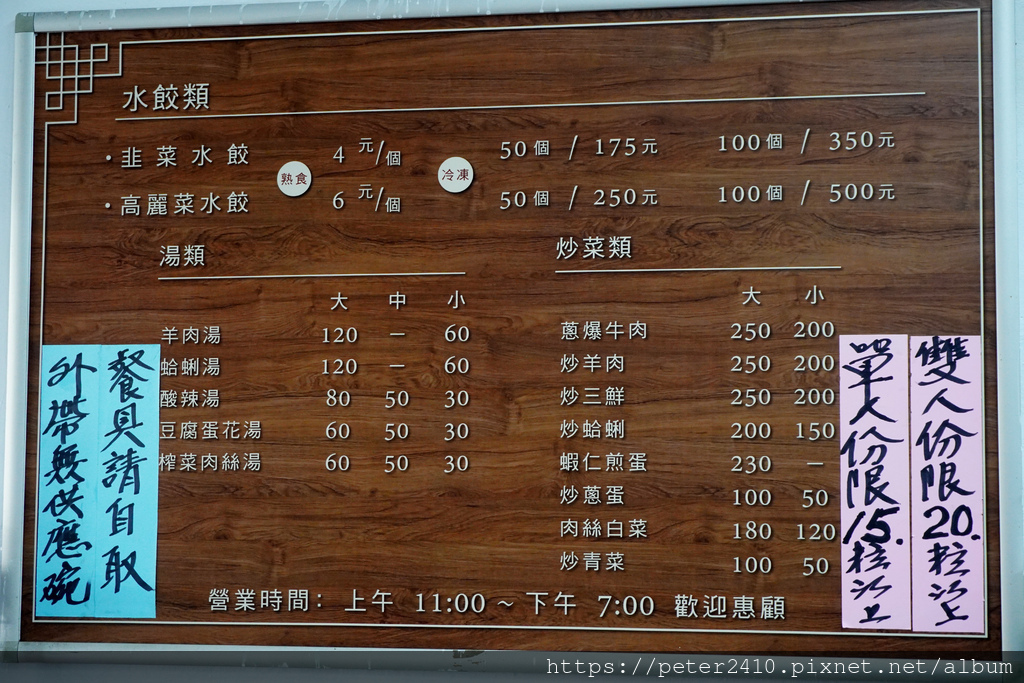 水餃類
・韭菜水餃 熟食 4元/個 冷凍 50個 / 175元 100個 / 350元
・高麗菜水餃 6元/個 50個 / 250元 100個 / 500元
湯類
大 中 小
羊肉湯 120 – 60
蛤蜊湯 120 – 60
酸辣湯 80 50 30
豆腐蛋花湯 60 50 30
榨菜肉絲湯 60 50 30
炒菜類
大 小
蔥爆牛肉 250 200
炒羊肉 250 200
炒三鮮 250 200
炒蛤蜊 200 150
蝦仁煎蛋 230 –
炒蔥蛋 100 50
肉絲白菜 180 120
炒青菜 100 50
營業時間： 上午 11:00 ~ 下午 7:00 歡迎惠顧
餐具請自取
外帶無供應碗
雙人份限20.粒以上
單人份限15.粒以上
https://peter2410.pixnet.net/album